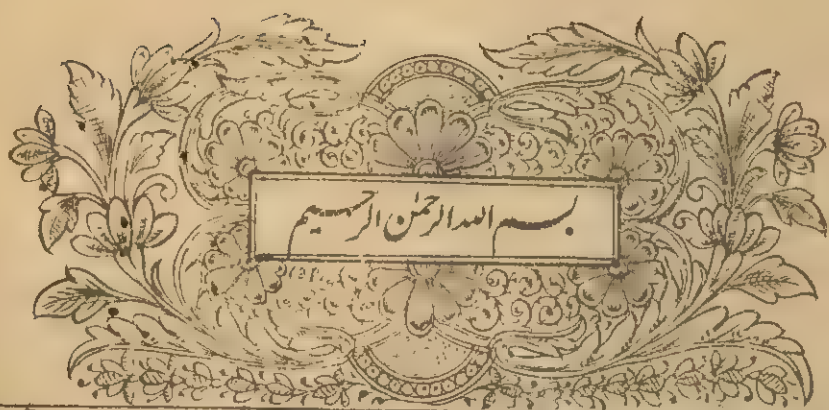 بسم اللہ الرحمٰن الرحیم